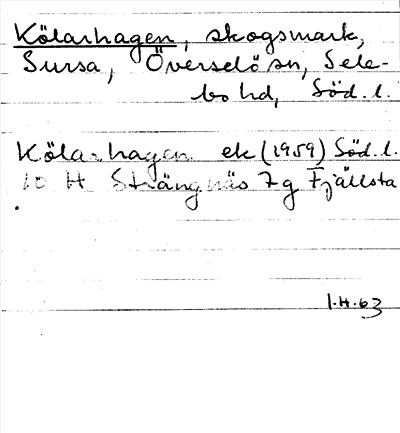 Kölarhagen, skogsmark,
Sursa, Överselö sn, Sele-
bo hd, Söd. l.
Kölarhagen ek (1959) Söd. l.
10 H Strängnäs 7g Fjällsta
1.H.63